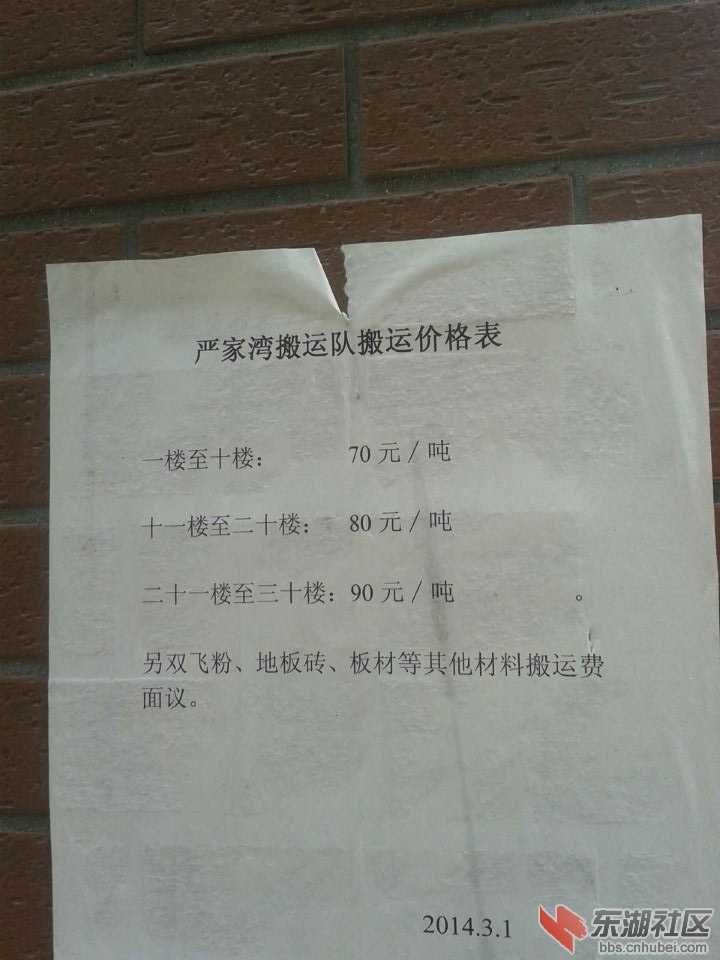 严家湾搬运队搬运价格表
一楼至十楼： 70 元／吨
十一楼至二十楼： 80 元／吨
二十一楼至三十楼：90 元／吨 。
另双飞粉、地板砖、板材等其他材料搬运费
面议。
2014.3.1
东湖社区
bbs.cnhubei.com